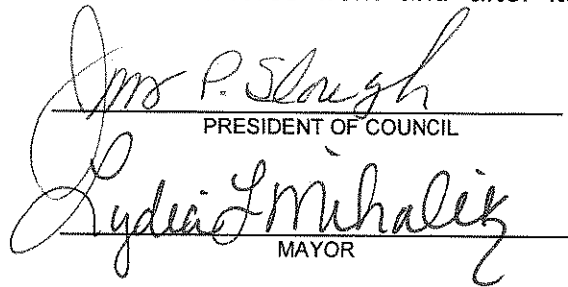 and after
P. Slough
PRESIDENT OF COUNCIL
Lydia L Mihalik
MAYOR